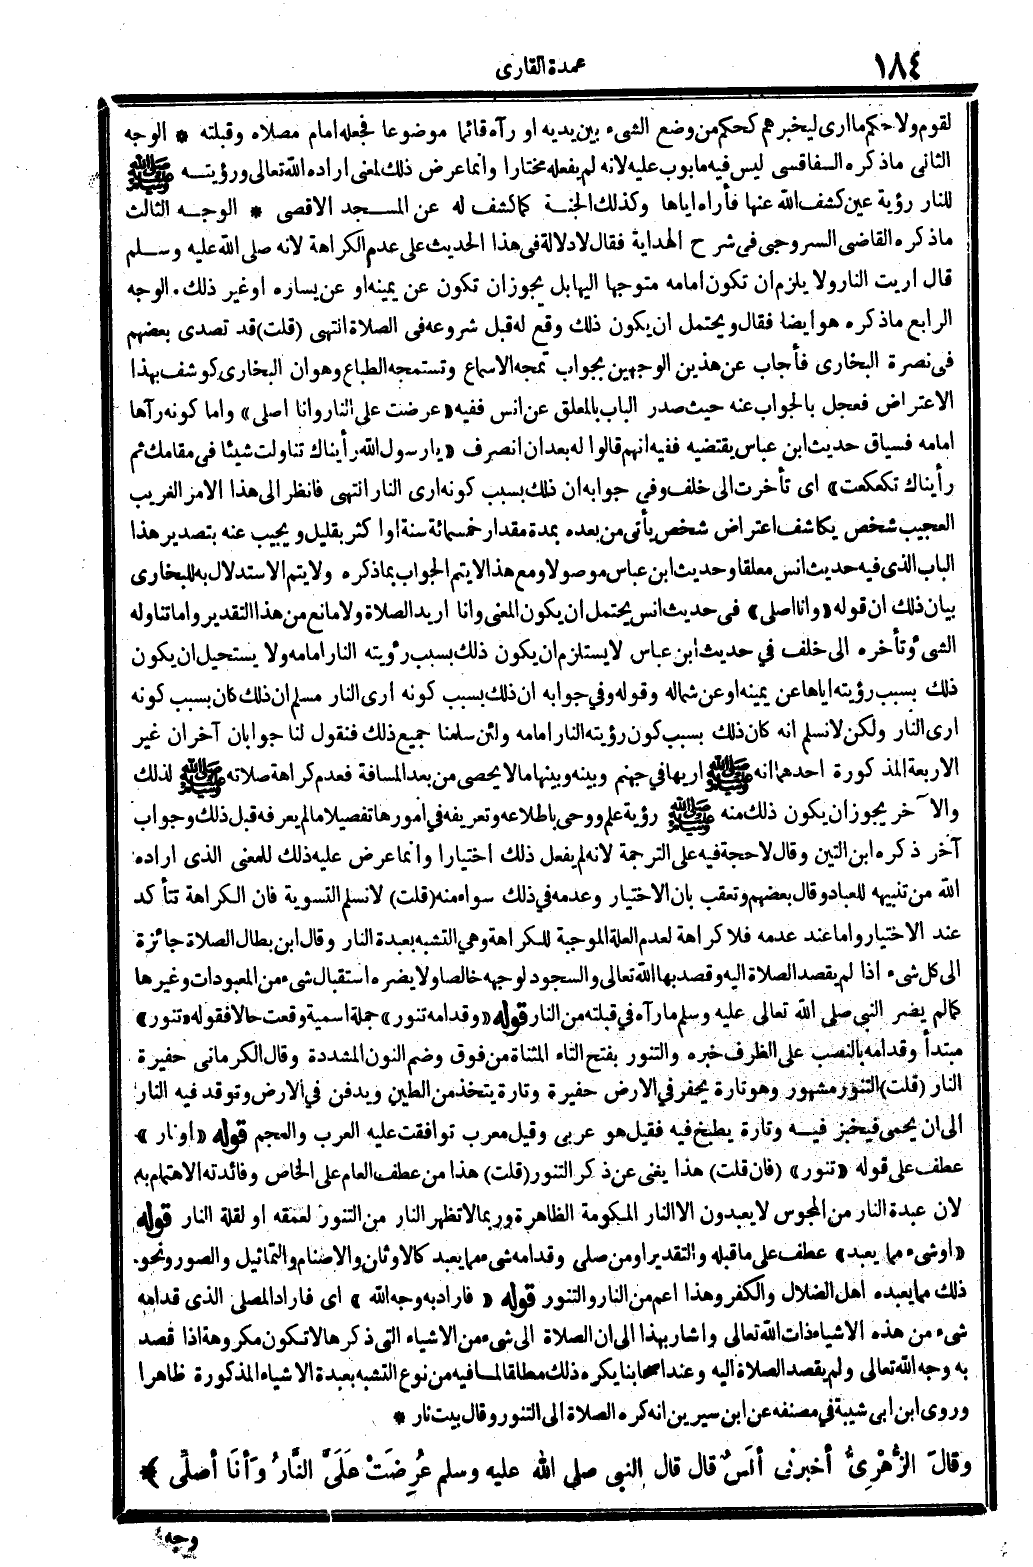 ١٨٤
عمدة القارى
لقوم ولا حكم ما ارى ليخبرهم كحكم من وضع الشىء بين يديه او رآه قائما موضوعا فجعله امام مصلاه وقبلته * الوجه
الثانى ماذكره السفاقسى ليس فيه ما بوب عليه لانه لم يفعله مختارا وانما عرض ذلك لمعنى اراده الله تعالى ورؤيته ﷺ
للنار رؤية عين كشف الله عنها فأراه اياها وكذلك الجنة كما كشف له عن المسجد الاقصى * الوجه الثالث
ماذكره القاضى السروجى فى شرح الهداية فقال لا دلالة فى هذا الحديث على عدم الكراهة لانه صلى الله عليه وسلم
قال اريت النار ولا يلزم ان تكون امامه متوجها اليها بل يجوز ان تكون عن يمينه او عن يساره او غير ذلك . الوجه
الرابع ماذكره هو ايضا فقال ويحتمل ان يكون ذلك وقع له قبل شروعه فى الصلاة انتهى (قلت) قد تصدى بعضهم
فى نصرة البخارى فأجاب عن هذين الوجهين بجواب تمجه الاسماع وتستمجه الطباع وهو ان البخارى كوشف بهذا
الاعتراض فعجل بالجواب عنه حيث صدر الباب بالمعلق عن انس ففيه «عرضت على النار وانا اصلى» واما كونه رآها
امامه فسياق حديث ابن عباس يقتضيه ففيه انهم قالوا له بعد ان انصرف «يارسول الله رأيناك تناولت شيئا فى مقامك ثم
رأيناك تكعكعت» اى تأخرت الى خلف وفي جوابه ان ذلك بسبب كونه ارى النار انتهى فانظر الى هذا الامر الغريب
العجيب شخص يكاشف اعتراض شخص يأتى من بعده بمدة مقدار خمسمائة سنة او اكثر بقليل ويجيب عنه بتصدير هذا
الباب الذى فيه حديث انس معلقا وحديث ابن عباس موصولا ومع هذا لا يتم الجواب بما ذكره ولا يتم الاستدلال به للبخارى
بيان ذلك ان قوله «وانا اصلى» فى حديث انس يحتمل ان يكون المعنى وانا اريد الصلاة ولا مانع من هذا التقدير واما تناوله
الشىء وتأخره الى خلف في حديث ابن عباس لا يستلزم ان يكون ذلك بسبب رؤيته النار امامه ولا يستحيل ان يكون
ذلك بسبب رؤيته اياها عن يمينه او عن شماله وقوله وفي جوابه ان ذلك بسبب كونه ارى النار مسلم ان ذلك كان بسبب كونه
ارى النار ولكن لا نسلم انه كان ذلك بسبب كون رؤيته النار امامه ولئن سلمنا جميع ذلك فنقول لنا جوابان آخران غير
الاربعة المذكورة احدهما انه ﷺ اريها في جهنم وبينه وبينها ما لا يحصى من بعد المسافة فعدم كراهة صلاته ﷺ لذلك
والآخر يجوز ان يكون ذلك منه ﷺ رؤية علم ووحى باطلاعه وتعريفه في امورها تفصيلا ما لم يعرفه قبل ذلك وجواب
آخر ذكره ابن التين وقال لا حجة فيه على الترجمة لانه لم يفعل ذلك اختيارا وانما عرض عليه ذلك للمعنى الذى اراده
الله من تنبيهه للعباد وقال بعضهم وتعقب بان الاختيار وعدمه فى ذلك سواء منه (قلت) لا نسلم التسوية فان الكراهة تتأكد
عند الاختيار واما عند عدمه فلا كراهة لعدم العلة الموجبة للكراهة وهي التشبه بعبدة النار وقال ابن بطال الصلاة جائزة
الى كل شىء اذا لم يقصد الصلاة اليه وقصد بها الله تعالى والسجود لوجهه خالصا ولا يضره استقبال شىء من المعبودات وغيرها
كما لم يضر النبى صلى الله تعالى عليه وسلم ما رآه في قبلته من النار قوله «وقدامه تنور» جملة اسمية وقعت حالا فقوله «تنور»
مبتدأ وقدامه بالنصب على الظرف خبره والتنور بفتح التاء المثناة من فوق وضم النون المشددة وقال الكرمانى حفيرة
النار (قلت) التنور مشهور وهو تارة يحفر في الارض حفيرة وتارة يتخذ من الطين ويدفن في الارض وتوقد فيه النار
الى ان يحمى فيخبز فيه وتارة يطبخ فيه فقيل هو عربى وقيل معرب توافقت عليه العرب والعجم قوله «او نار»
عطف على قوله «تنور» (فان قلت) هذا يغنى عن ذكر التنور (قلت) هذا من عطف العام على الخاص وفائدته الاهتمام به
لان عبدة النار من المجوس لا يعبدون الا النار المكومة الظاهرة وربما لا تظهر النار من التنور لعمقه او لقلة النار قوله
«او شىء مما يعبد» عطف على ما قبله والتقدير او من صلى وقدامه شىء مما يعبد كالاوثان والاصنام والتماثيل والصور ونحو
ذلك مما يعبده اهل الضلال والكفر وهذا اعم من النار والتنور قوله «فاراد به وجه الله» اى فاراد المصلى الذى قدامه
شىء من هذه الاشياء ذات الله تعالى واشار بهذا الى ان الصلاة الى شىء من الاشياء التى ذكرها لا تكون مكروهة اذا قصد
به وجه الله تعالى ولم يقصد الصلاة اليه وعند اصحابنا يكره ذلك مطلقا لما فيه من نوع التشبه بعبدة الاشياء المذكورة ظاهرا
وروى ابن ابى شيبة في مصنفه عن ابن سيرين انه كره الصلاة الى التنور وقال بيت نار *
وقال الزُّهْرِىُّ أخبرنى أنَسٌ قال قال النبى صلى الله عليه وسلم عُرِضَتْ عَلَىَّ النَّارُ وَأنَا أصَلِّى ﴾
وجه